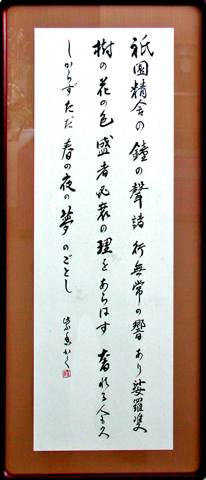 祇園精舎の鐘の聲諸行無常の響あり娑羅雙
樹の花の色盛者必衰の理をあらはす奢れる人も久
しからずただ春の夜の夢のごとし